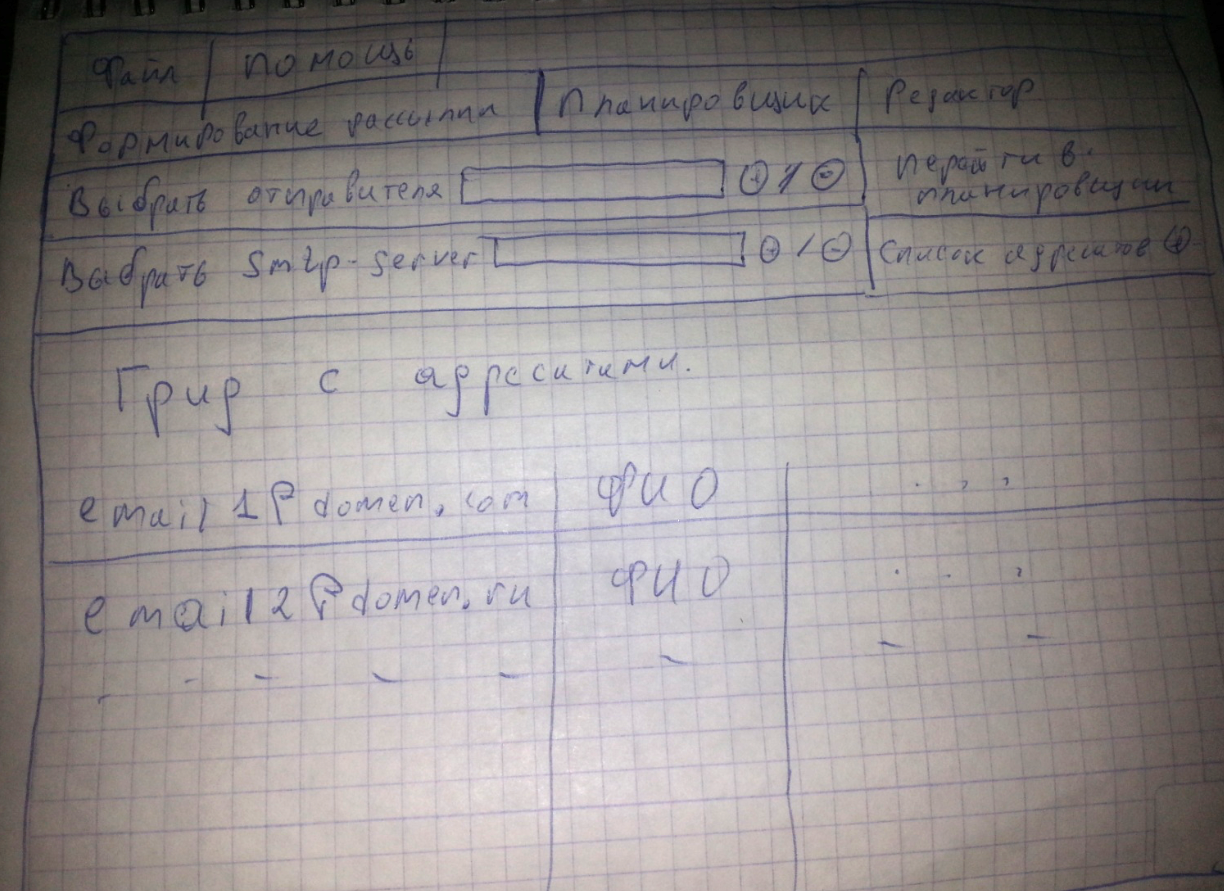 Файл | Помощь |
Формирование рассылки | Планировщик | Редактор
Выбрать отправителя ⊕ / ⊖ Перейти в планировщик
Выбрать Smtp-Server ⊕ / ⊖ Список адресатов ⊕
Грид с адресатами.
email1@domen.com | ФИО | . . .
email2@domen.ru | ФИО | . . .